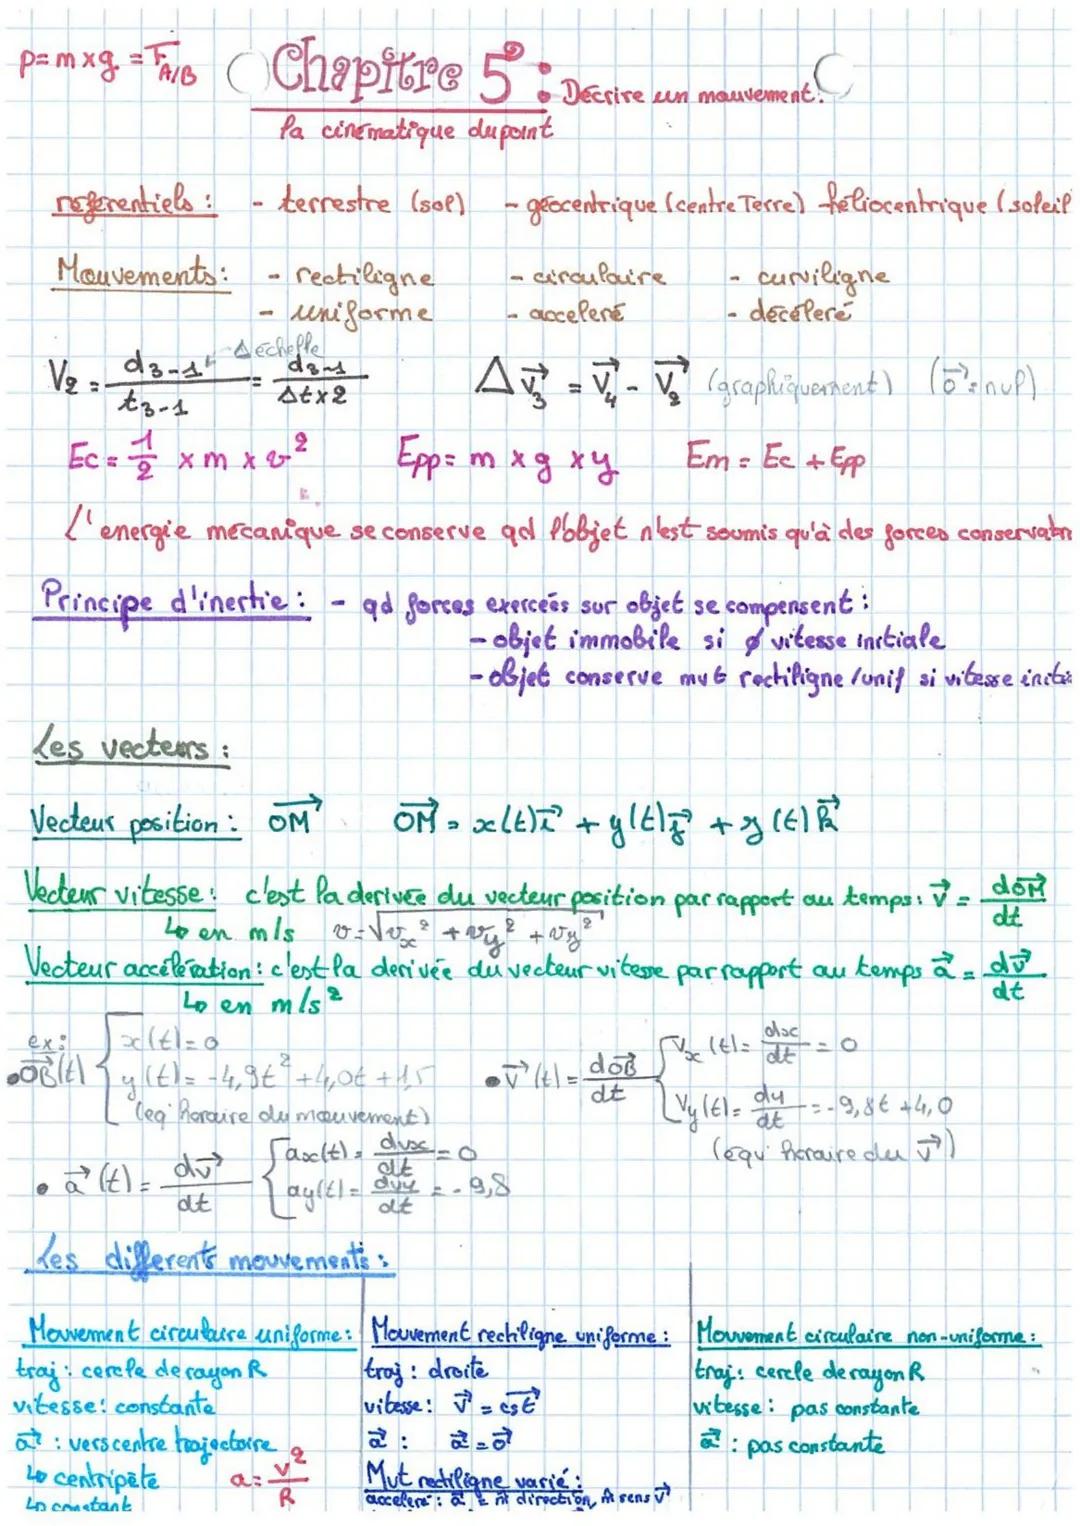 p = m x g = F A/B
Chapitre 5 : Décrire un mouvement.
la cinématique du point
référentiels : - terrestre (sol) - géocentrique (centre Terre) héliocentrique (soleil
Mouvements : - rectiligne - circulaire - curviligne
- uniforme - acceleré - décéleré
V₂ = d₃₋₁ / t₃₋₁ = d₃₋₁ / Δt x 2 Δ échelle Δv⃗₃ = v⃗₄ - v⃗₂ (graphiquement) (o⃗ = nul)
Ec = 1/2 x m x v² Epp = m x g x y Em = Ec + Epp
L'energie mécanique se conserve qd l'objet n'est soumis qu'à des forces conservatr
Principe d'inertie : - qd forces exercées sur objet se compensent :
- objet immobile si ø vitesse initiale
- objet conserve mvt rectiligne/unif si vitesse initia
Les vecteurs :
Vecteur position : OM⃗ OM⃗ = x(t)i⃗ + y(t)j⃗ + z(t)k⃗
Vecteur vitesse : c'est la derivée du vecteur position par rapport au temps : v⃗ = dOM⃗/dt
↳ en m/s v = √(vx² + vy² + vy²)
Vecteur accélération : c'est la derivée du vecteur vitesse par rapport au temps a⃗ = dv⃗/dt
↳ en m/s²
ex :
• OB⃗(t) { x(t) = 0
y(t) = -4,9t² + 4,0t + 1,5
(eq° horaire du mouvement)
• v⃗(t) = dOB⃗/dt { Vx(t) = dx/dt = 0
Vy(t) = dy/dt = -9,8t + 4,0
(equ° horaire du v⃗)
• a⃗(t) = dv⃗/dt { ax(t) = dvx/dt = 0
ay(t) = dvy/dt = -9,8
Les differents mouvements :
Mouvement circulaire uniforme :
traj : cercle de rayon R
vitesse : constante
a⃗ : vers centre trajectoire
↳ centripète a = v²/R
↳ constant
Mouvement rectiligne uniforme :
traj : droite
vitesse : v⃗ = cst⃗
a⃗ : a⃗ = o⃗
Mvt rectiligne varié :
acceleré : a⃗ = m̂ direction, m̂ sens v⃗
Mouvement circulaire non-uniforme :
traj : cercle de rayon R
vitesse : pas constante
a⃗ : pas constante